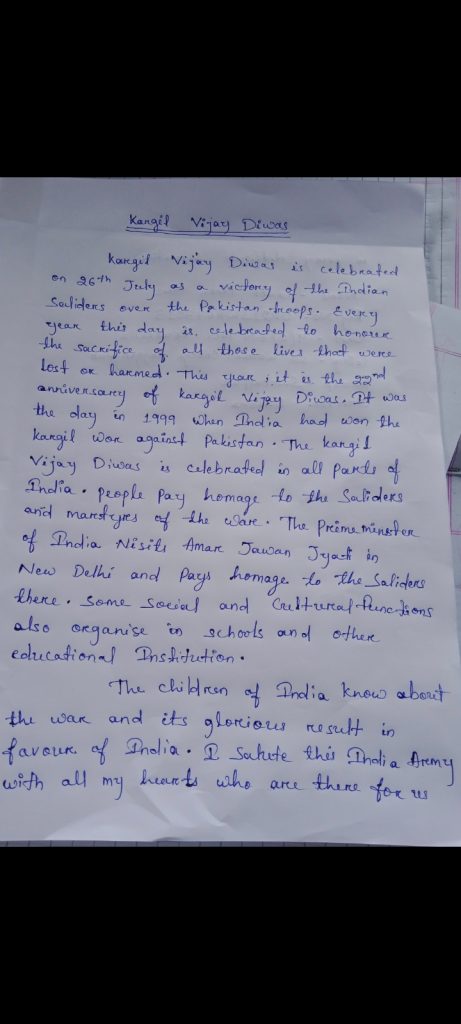 Kargil Vijay Diwas
Kargil Vijay Diwas is celebrated
on 26th July as a victory of the Indian
Saliders over the Pakistan troops. Every
year this day is celebrated to honour
the sacrifice of all those lives that were
lost or harmed. This year, it is the 22nd
anniversary of Kargil Vijay Diwas. It was
the day in 1999 when India had won the
Kargil War against Pakistan. The Kargil
Vijay Diwas is celebrated in all parts of
India. People pay homage to the Saliders
and marstyres of the war. The Prime minister
of India Nisits Amar Jawan Jyoti in
New Delhi and Pays homage to the Saliders
there. Some Social and Cultural functions
also organise in schools and other
educational Institution.
The children of India know about
the war and its glorious result in
favour of India. I Salute this India Army
with all my hearts who are there for us